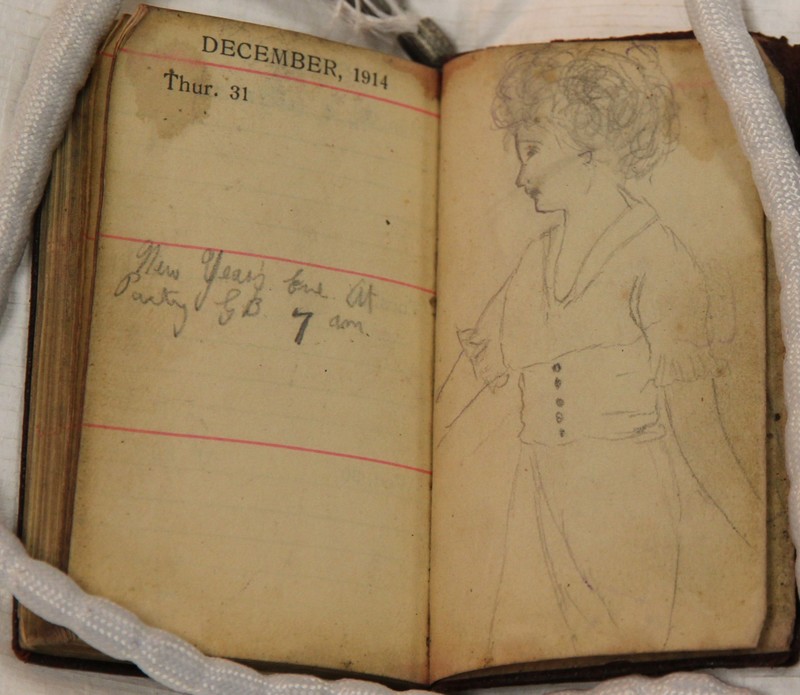 DECEMBER, 1914
Thur. 31
New Year's Eve At
Party GB 7 am.